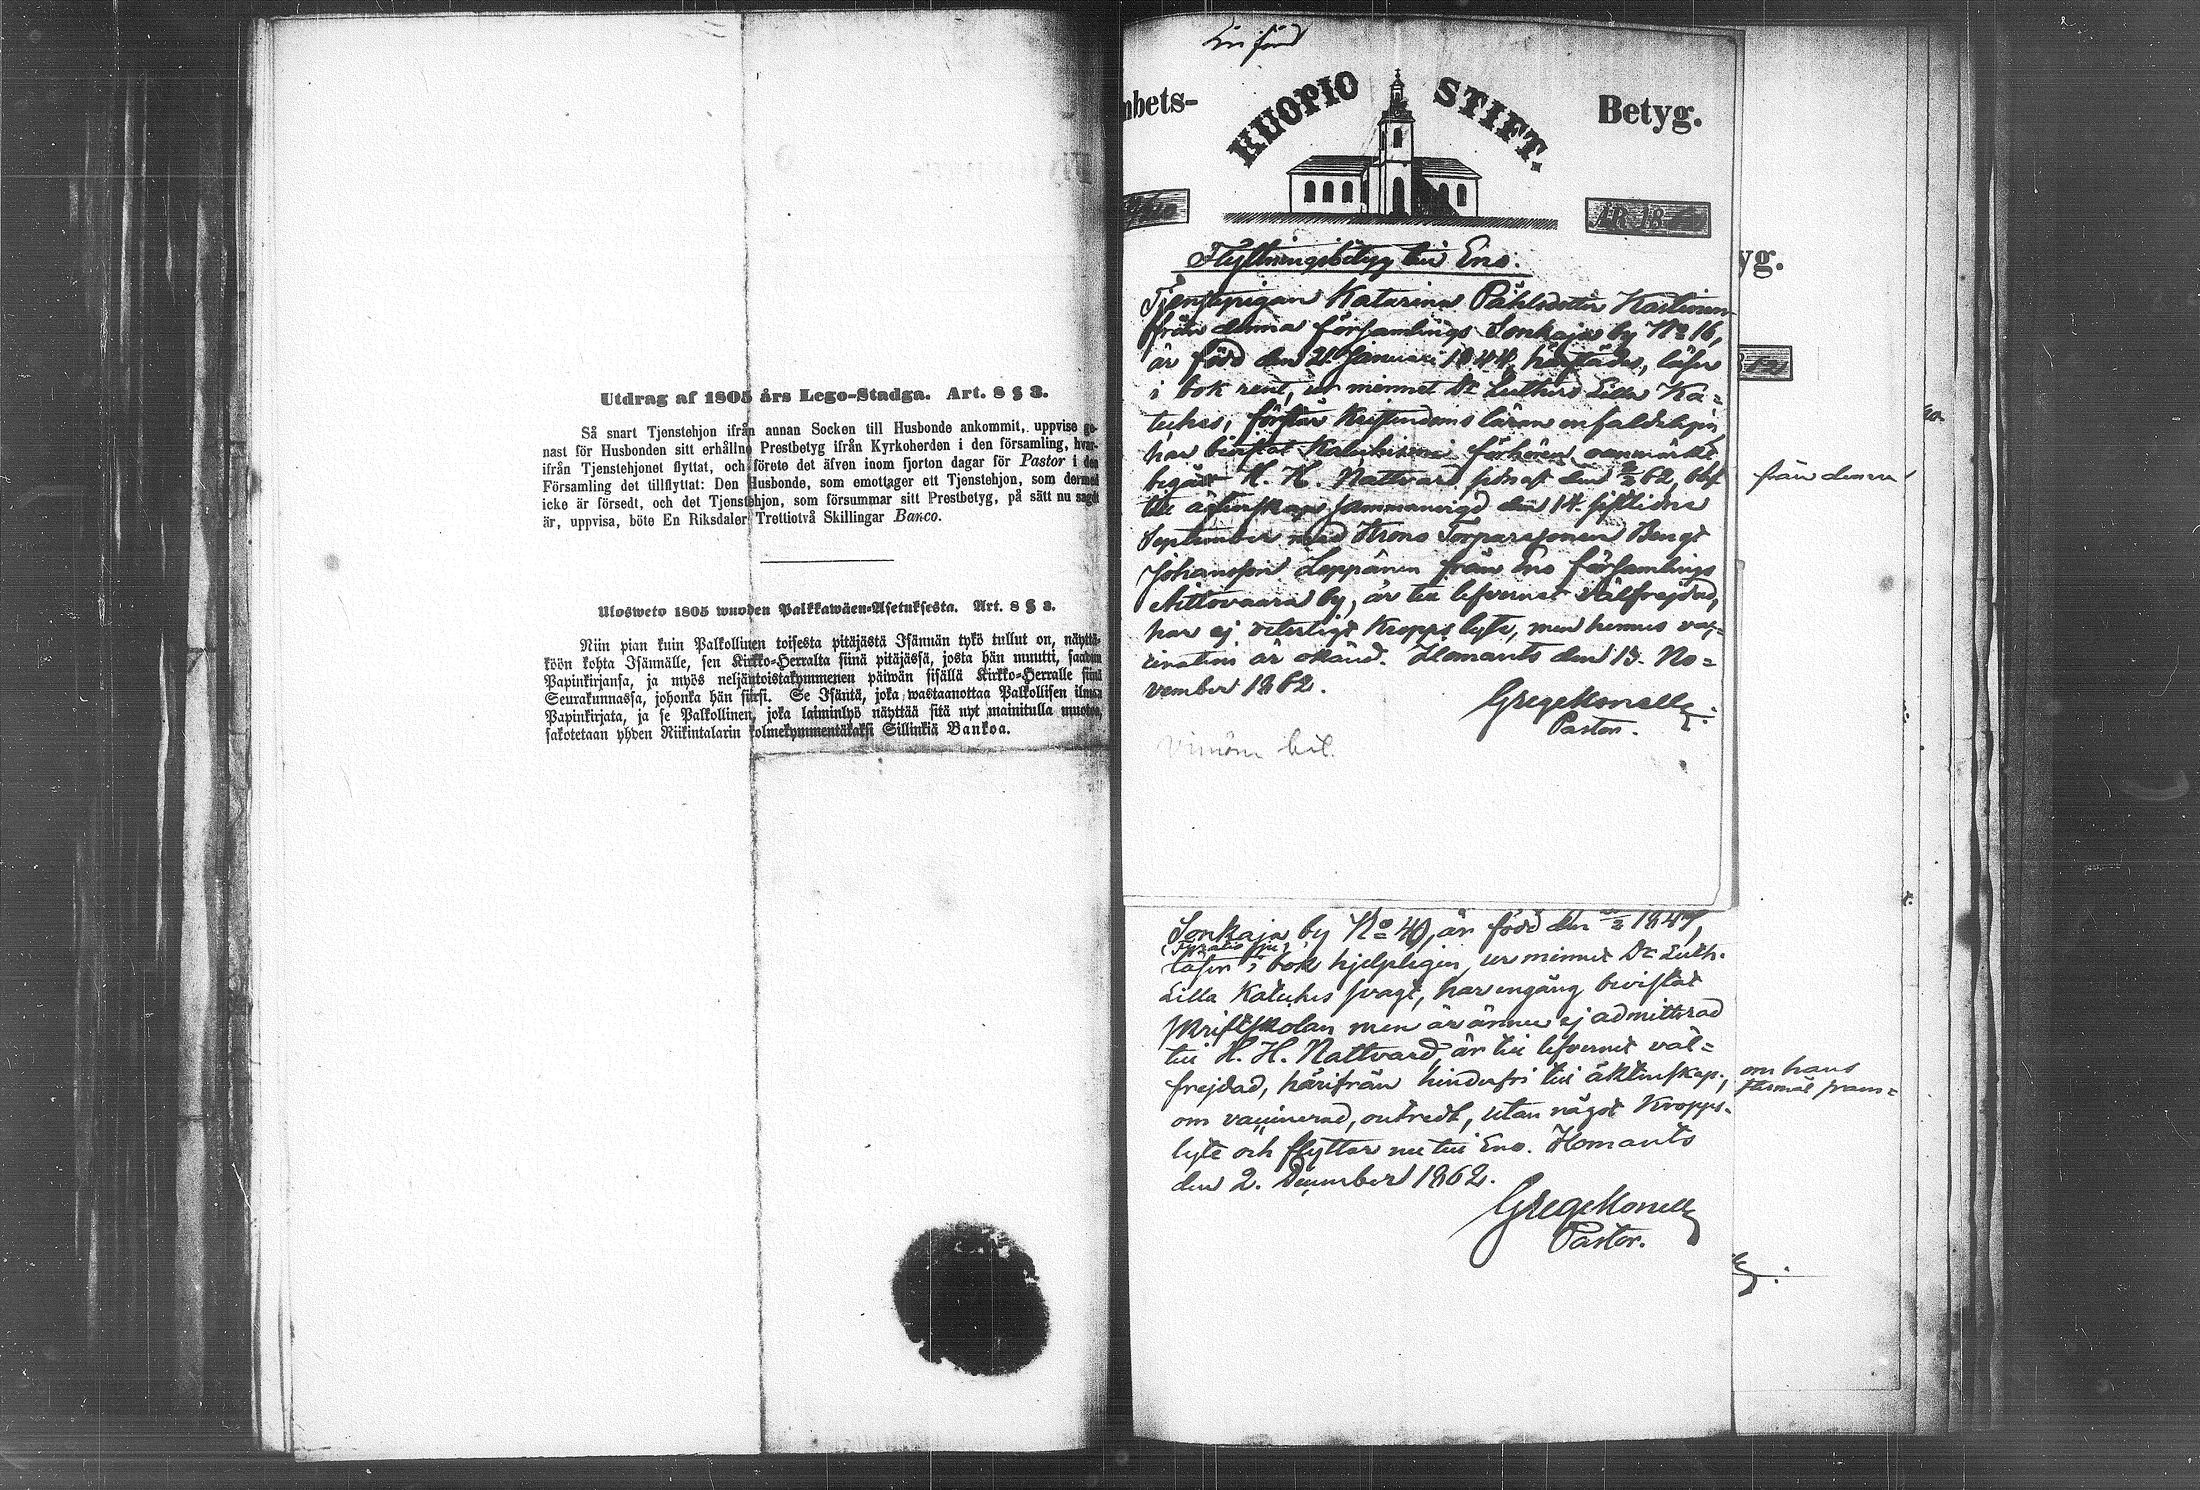 Utdrag af 1805 års Lego-Stadga. Art. 8 § 3.
Så snart Tjenstehjon ifrån annan Socken till Husbonde ankommit, uppvise ge-
nast för Husbonden sitt erhållne Prestbetyg ifrån Kyrkoherden i den församling, hvar-
ifrån Tjenstehjonet flyttat, och förete det äfven inom fjorton dagar för Pastor i den
Församling det tillflyttat: Den Husbonde, som emottager ett Tjenstehjon, som dermed
icke är försedt, och det Tjenstehjon, som försummar sitt Prestbetyg, på sätt nu sagdt
är, uppvisa, böte En Riksdaler Trettiotvå Skillingar Banco.
Ulosweto 1805 wuoden Palkkawäen-Asetuksesta. Art. 8 § 3.
Niin pian kuin Palkollinen toisesta pitäjästä Isännän tykö tullut on, näyttä-
köön kohta Isännälle, sen Kirkko-Herralta siinä pitäjässä, josta hän muutti, saadun
Papinkirjansa, ja myös neljäntoistakymmenen päiwän sisällä Kirkko-Herralle siinä
Seurakunnassa, johonka hän siirsi. Se Isäntä, joka wastaanottaa Palkollisen ilman
Papinkirjata, ja se Palkollinen, joka laiminlyö näyttää sitä nyt mainitulla muotoa,
sakotetaan yhden Riikintalarin kolmekymmentäkaksi Sillinkiä Bankoa.
mbets-
KUOPIO STIFT.
Betyg.
ÅR 18
Flyttningsbetyg till Eno.
Tjenstepigan Katarina Påhlsdotter Kastinen
från denna församlings Sonkaja by No 16,
är född den 21 Januari 1844, härstädes, läser
i bok rent, ur minnet Dr Luthers Lilla Ka=
teches, förstår Kristendoms läran enfaldeligen,
har bevistat Katechismi förhören oanmärkt
begått H. H. Nattvard sednast den 62, blef
till äktenskap sammanvigd den 14. sistlidne
September med Krono Torparesonen Bengt
Johansson Leppänen från Eno församlings
Ahvovaara by, är till lefvernet välfrejdad,
har ej veterligt Kropps lyte, men hennes vac=
cination är okänd. Ilomants den 13. No=
vember 1862.
Greg. Monell
Pastor.
Sonkaja by No 40, är född den 1847,
läser i bok hjelpligen, ur minnet Dr Luth.
Lilla Kateches svagt, har engång bevistat
skriftskolan men är ännu ej admitterad
till H. H. Nattvard, är till lefvernet väl=
frejdad, härifrån hinderfri till äktenskap,
om vaccinerad, outredt, utan något Kropps-
lyte och flyttar nu till Eno. Ilomants
den 2. December 1862.
Greg. Monell
Pastor.
yg.
från denna
om hans